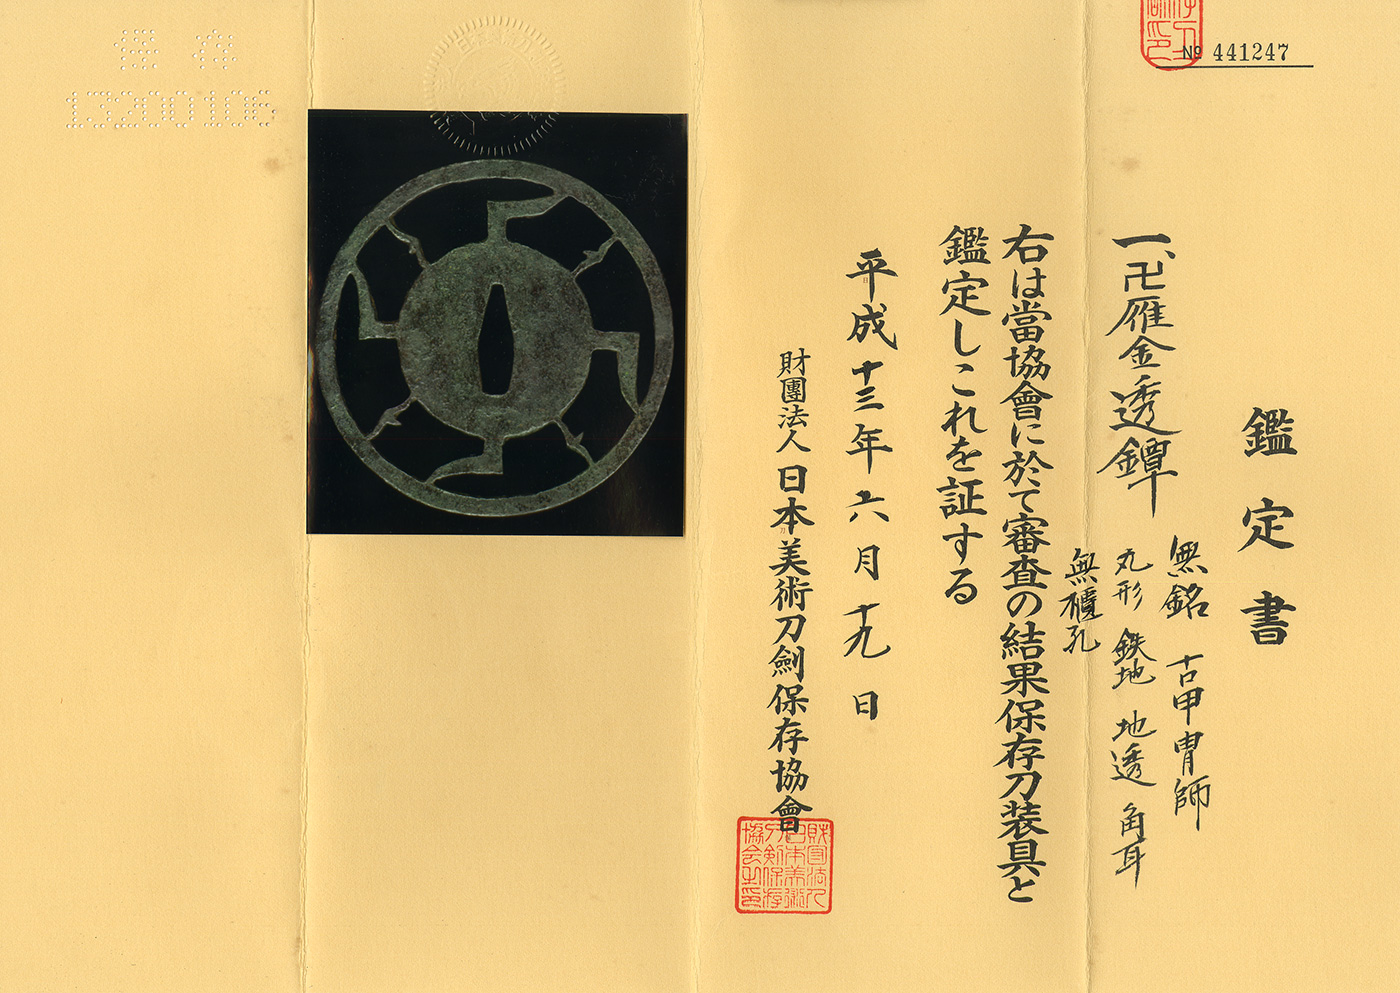 № 441247
鑑定書
一、卍雁金透鐔
無銘 古甲冑師
丸形 鉄地 地透 角耳
無櫃孔
右は當協會に於て審査の結果保存刀装具と
鑑定しこれを証する
平成十三年六月十九日
財團法人日本美術刀劍保存協會
財団法人
日本美術
刀剣保存
協会之印
保存
13200106